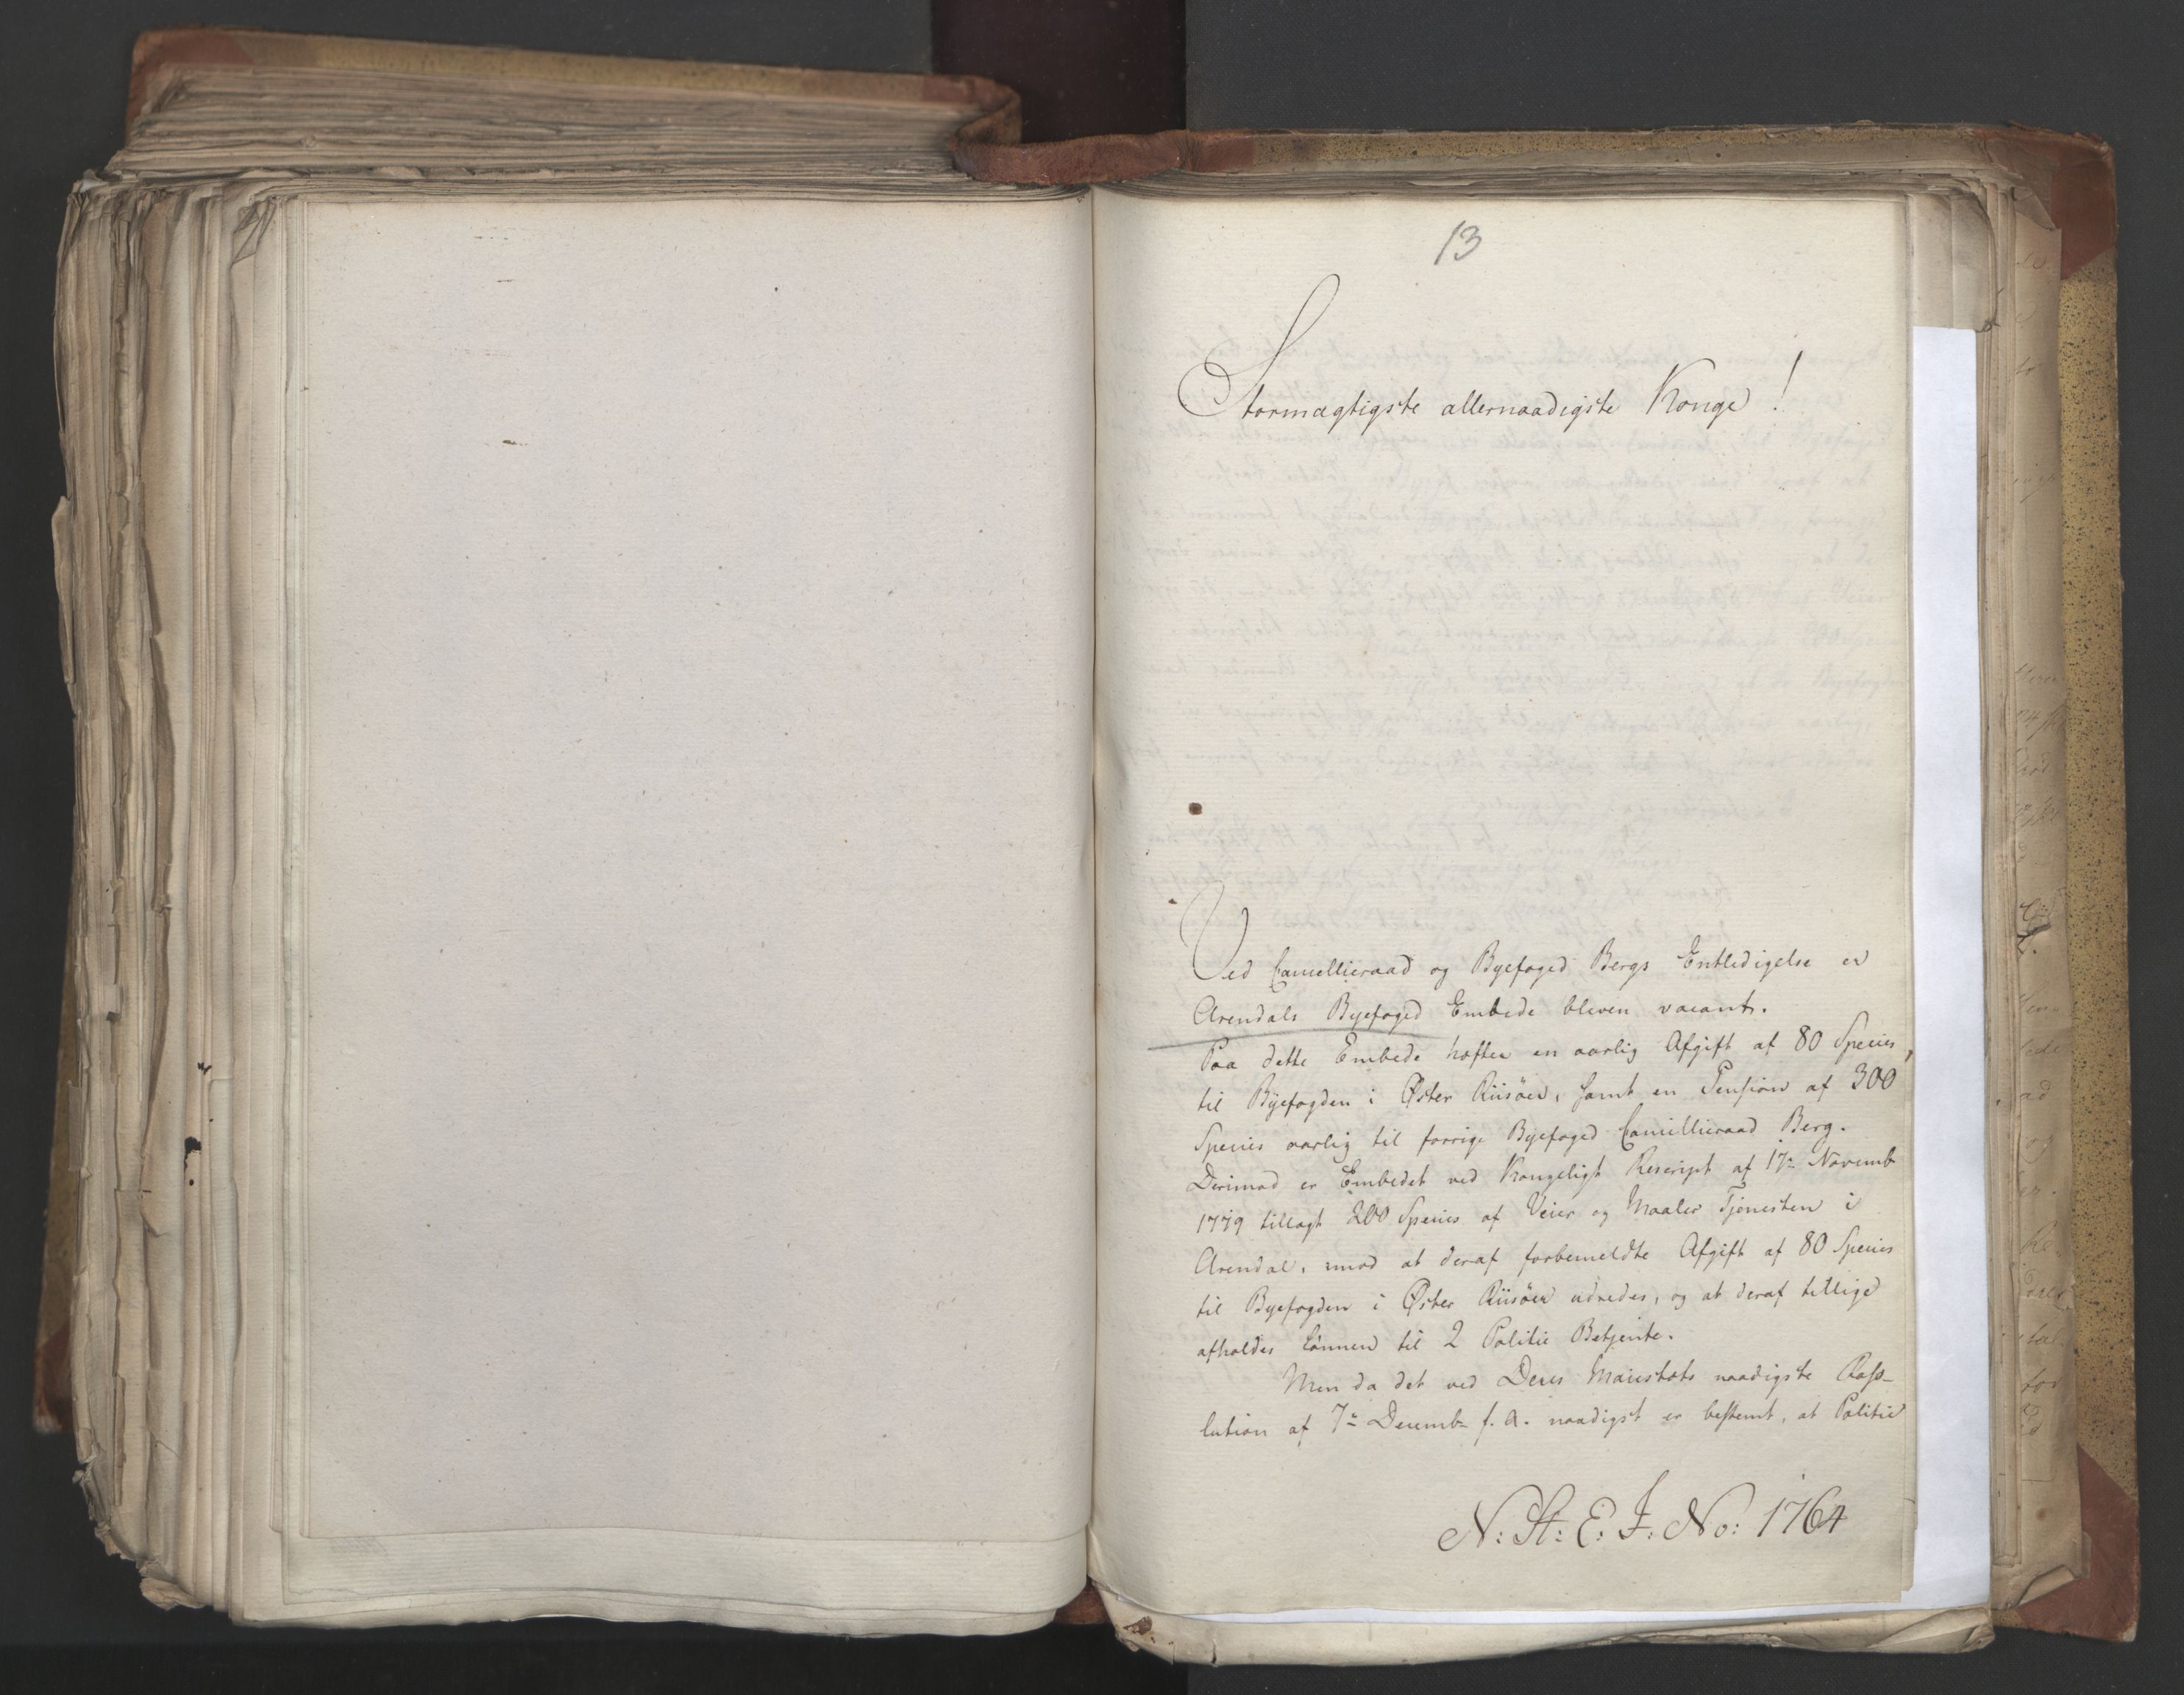 13
Stormægtigste allernaadigste Konge!
Ved Cancellieraad og Byefoged Bergs Entledigelse er
Arendals Byefoged Embede bleven vacant.
Paa dette Embede hæfter en aarlig Afgift af 80 Species,
til Byefogden i Øster Riisöer, samt en Pension af 300
Species aarlig til forrige Byefoged Cancellieraad Berg.
Derimod er Embedet ved Kongeligt Rescript af 17de Novemb
1779 tillagt 200 Species af Veier og Maaler Tjenesten i
Arendal, mod at deraf forbemeldte Afgift af 80 Species
til Byefogden i Øster Riisöer udredes, og at deraf tillige
afholdes Lönnen til 2 Politie Betjente.
Men da det ved Deres Majestæts naadigste Reso-
lution af 7de Decemb f. A. naadigst er bestemt, at Politie
N: St: E: J: No: 1764